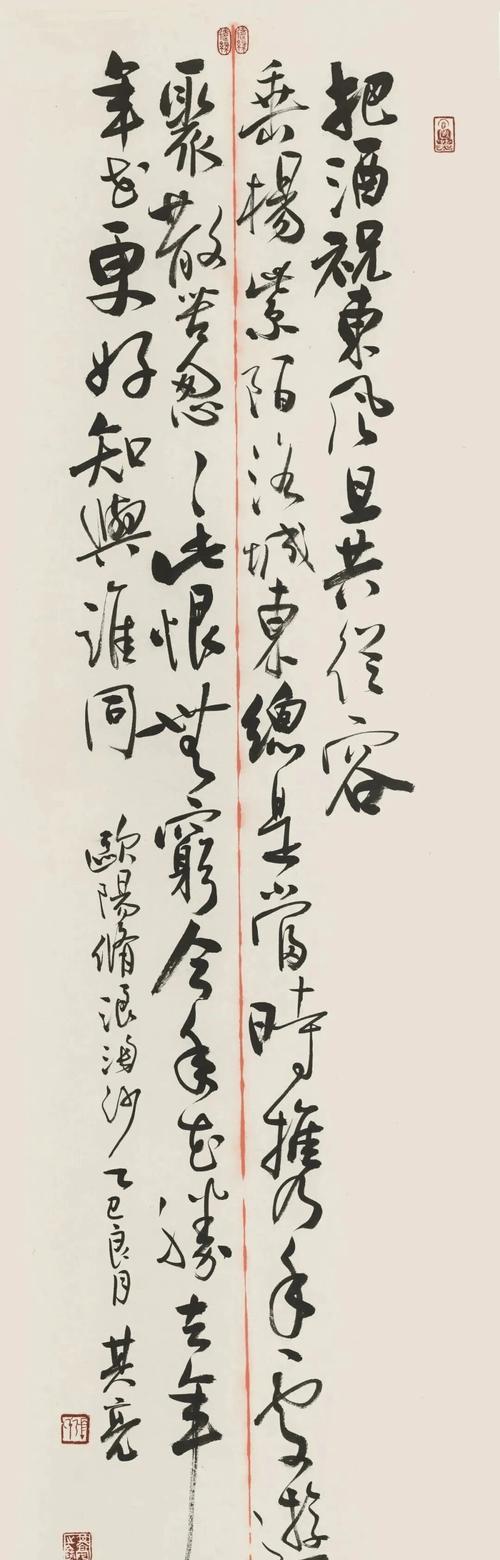 把酒祝東風且共從容
垂楊紫陌洛城東總是當時攜手處游
聚散苦怱〻此恨無窮今年花勝去年
年花更好知與誰同 歐陽脩浪淘沙 乙巳良月 其亮